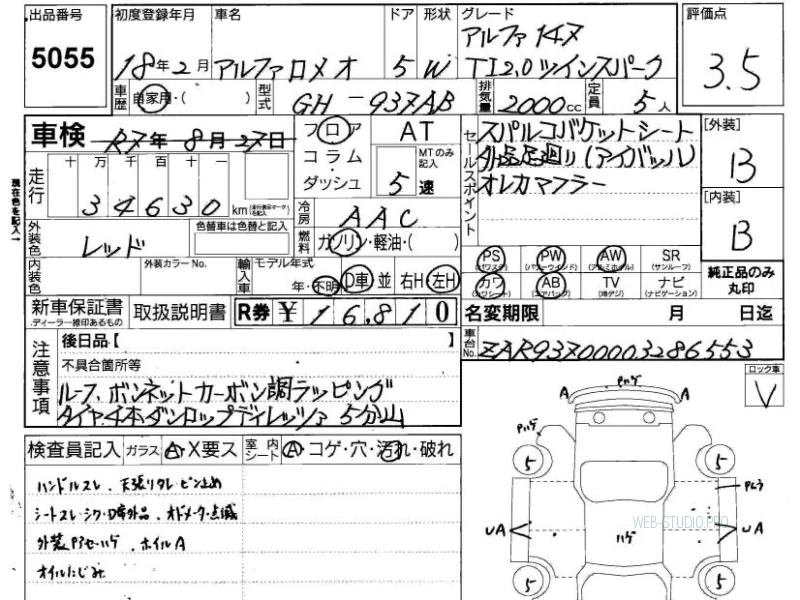 出品番号 初度登録年月 車名 ドア 形状 グレード 評価点
アルファ147
5055 18年2月 アルファロメオ 5 W TI 2.0 ツインスパーク 3.5
車歴 自家用・( ) 型式 GH-937AB 排気量 2000cc 定員 5人
車検 R7年8月27日 フロア AT セールスポイント スパルコバケットシート [外装]
コラム MTのみ記入 外品足廻り(アイバッハ) B
走行 十万千百十一 ダッシュ 5速 オレカマフラー
34630km (走行積算マークを記入) 冷房 AAC [内装]
現在色を記入→
外装色 レッド 色替車は色替と記入 燃料 ガソリン・軽油・( ) B
PS (パワステ) PW (パワーウインド) AW (アルミホイル) SR (サンルーフ)
内装色 外装カラーNo. 輸入車 モデル年式 年・不明 D車 並 右H・左H カワ (カワシート) AB (エアバッグ) TV (地デジ) ナビ (ナビゲーション) 純正品のみ丸印
新車保証書 ディーラー捺印あるもの 取扱説明書 R券 ¥16,810 名変期限 月 日迄
注意事項 後日品【 】 車台No. ZAR93700003286553
不具合箇所等 ロック車
ルーフ、ボンネットカーボン調ラッピング V
タイヤ4本ダンロップディレッツァ 5分山
検査員記入 ガラス A・X要ス 室内シート A・コゲ・穴・汚れ・破れ
ハンドルスレ、天張りタレ・ピン止め
シートスレ・シワ・D席外品、オドメータ点滅
外装Pアセ・ハゲ、ホイルA
オイルにじみ
Pハゲ
A A
Pハゲ
5 5
UA UA
ハゲ
WEB-STUDIO.PRO
5 5